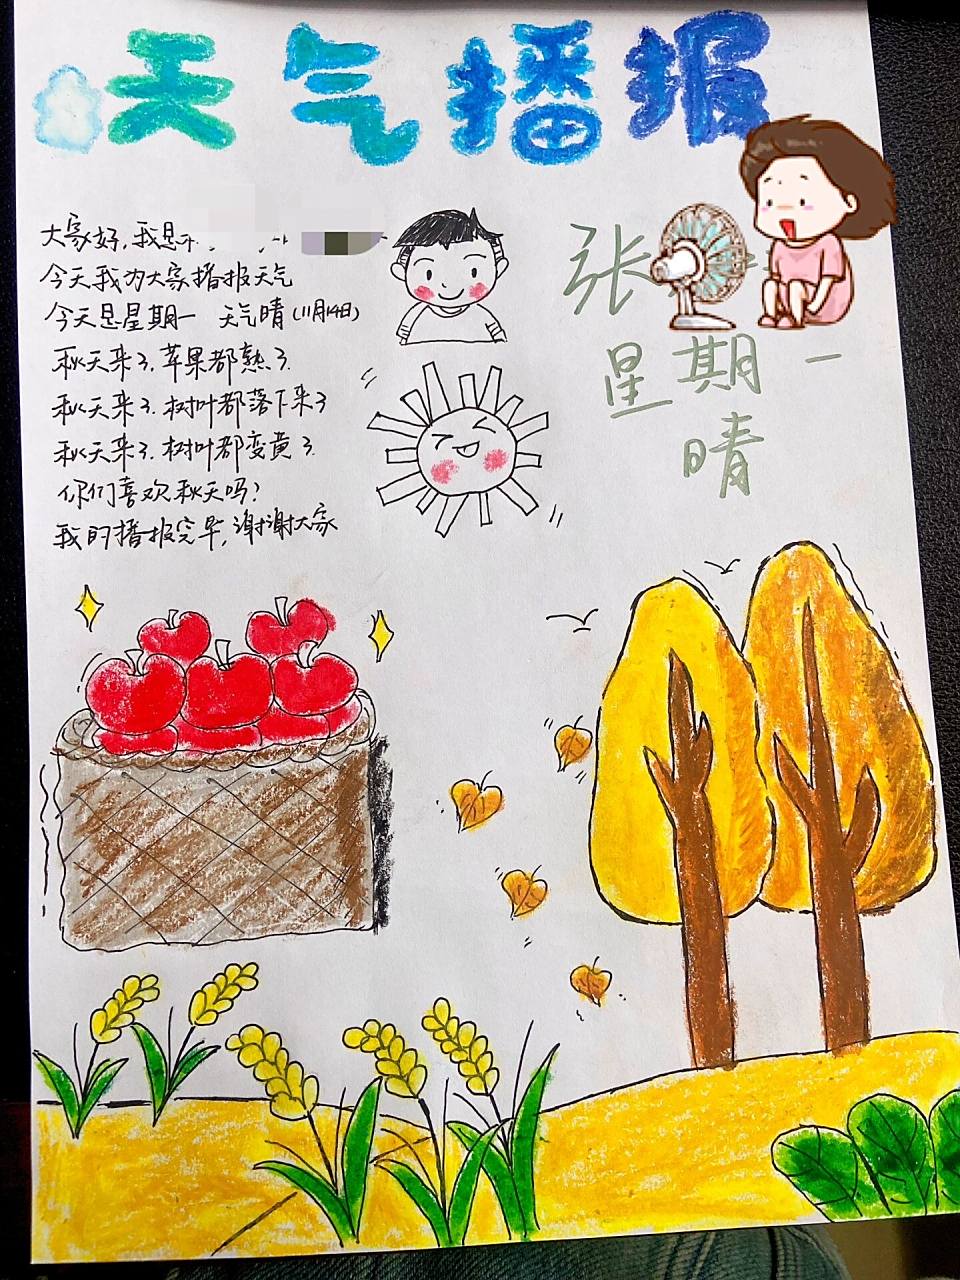 天气播报
大家好,我是
今天我为大家播报天气
今天是星期一 天气晴(11月14日)
秋天来了.苹果都熟了.
秋天来了.树叶都落下来了
秋天来了.树叶都变黄了.
你们喜欢秋天吗?
我的播报完毕,谢谢大家
张
星期一
晴